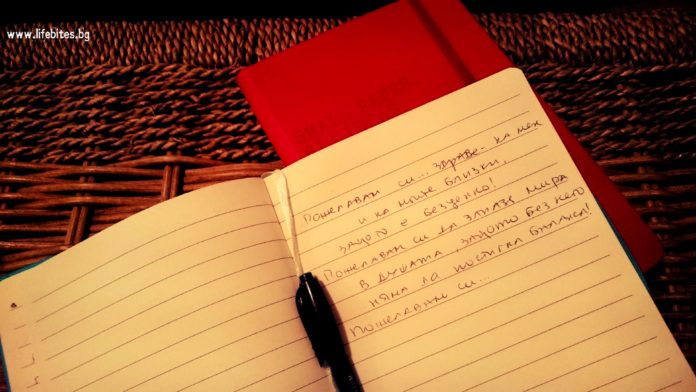 www.lifebites.bg
SMALL PAPER
Пожелавам си... здраве - на мен
и на моите близки,
защото е безценно!
Пожелавам си да запазя мира
в душата, защото без него
няма да постигна баланса!
Пожелавам си...